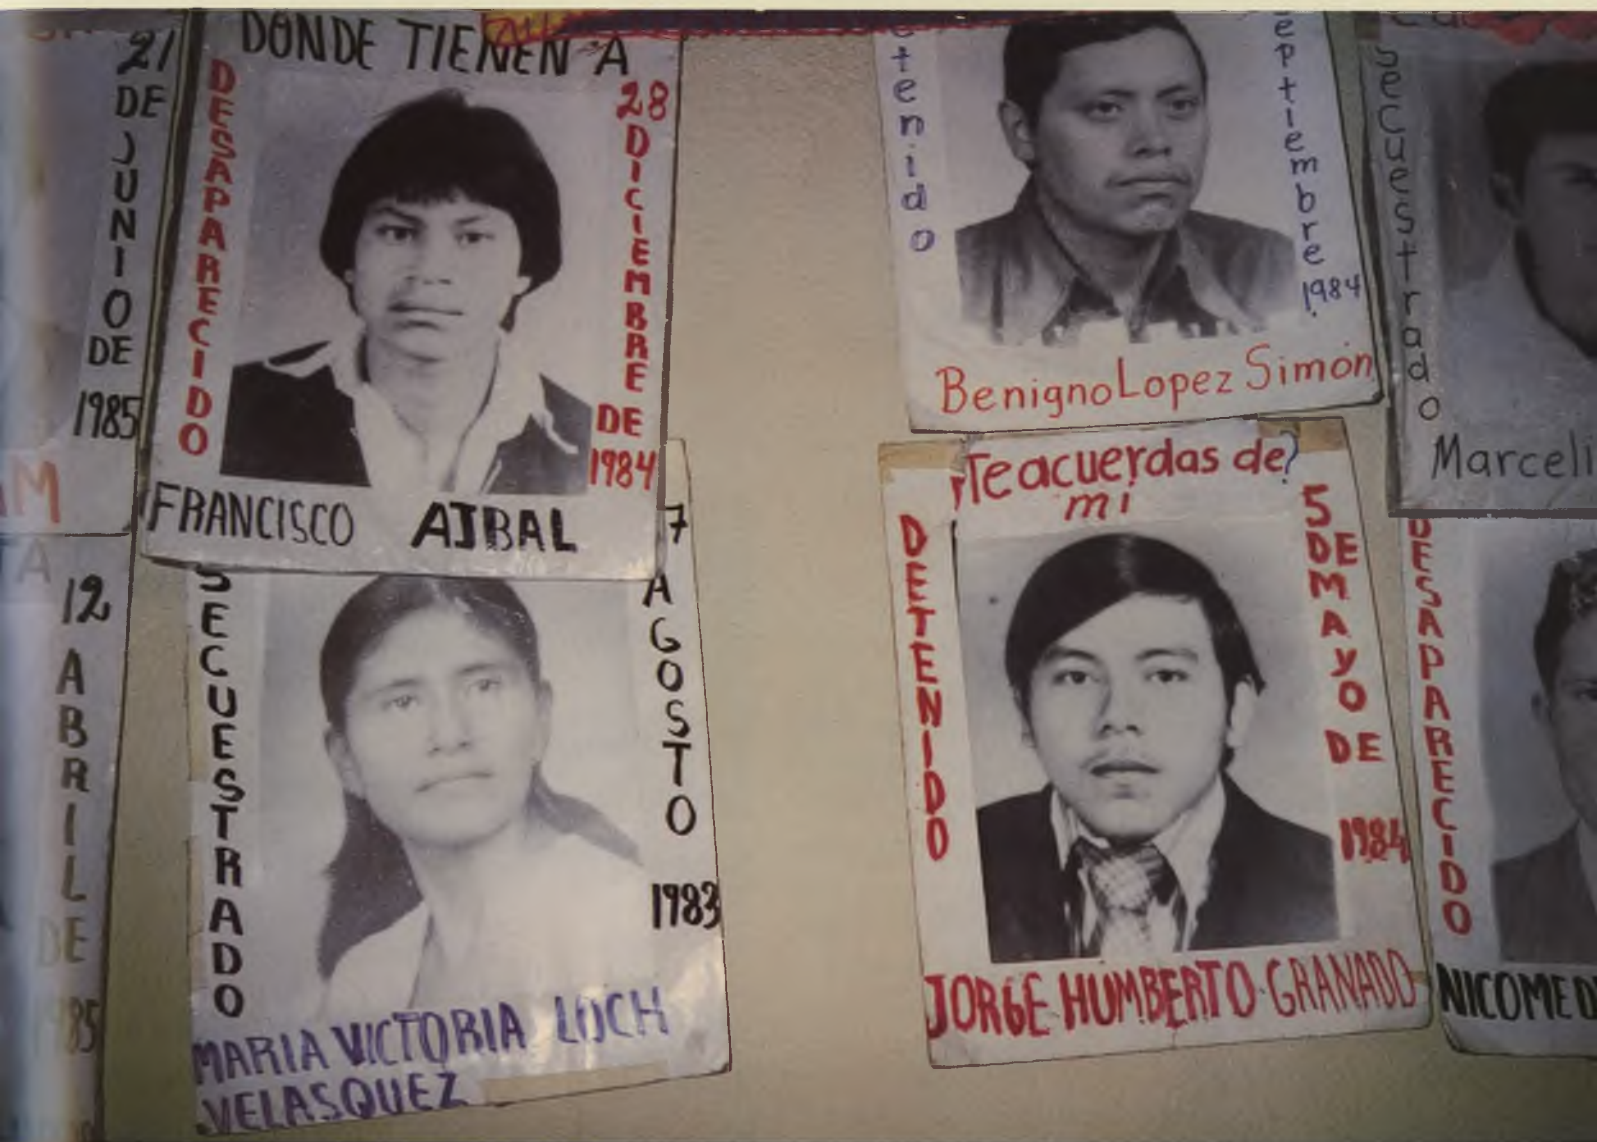 21
DE
JUNIO
DE
1985
M
A
12
ABRIL
DE
85
DONDE TIENEN A
DESAPARECIDO
28
DICIEMBRE
DE
1984
FRANCISCO AJBAL
SECUESTRADO
7
AGOSTO
1983
MARIA VICTORIA LOCH
VELASQUEZ
etenido
eptiembre
1984
Benigno Lopez Simón
¿Te acuerdas de?
mi
DETENIDO
5
DE
MAYO
DE
1984
JORGE HUMBERTO GRANADO
secuestrado
Marceli
DESAPARECIDO
NICOMED